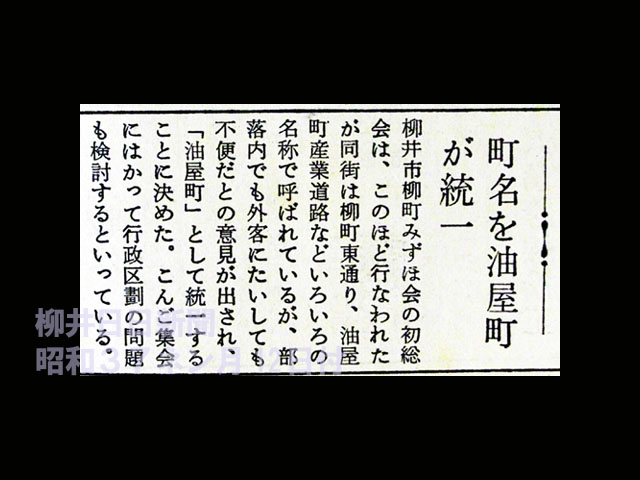 町名を油屋町
が統一
柳井市柳町みずほ会の初総
会は、このほど行なわれた
が同街は柳町東通り、油屋
町産業道路などいろいろの
名称で呼ばれているが、部
落内でも外客にたいしても
不便だとの意見が出され、
「油屋町」として統一する
ことに決めた。こんご集会
にはかって行政区劃の問題
も検討するといっている。
柳井日日新聞
昭和